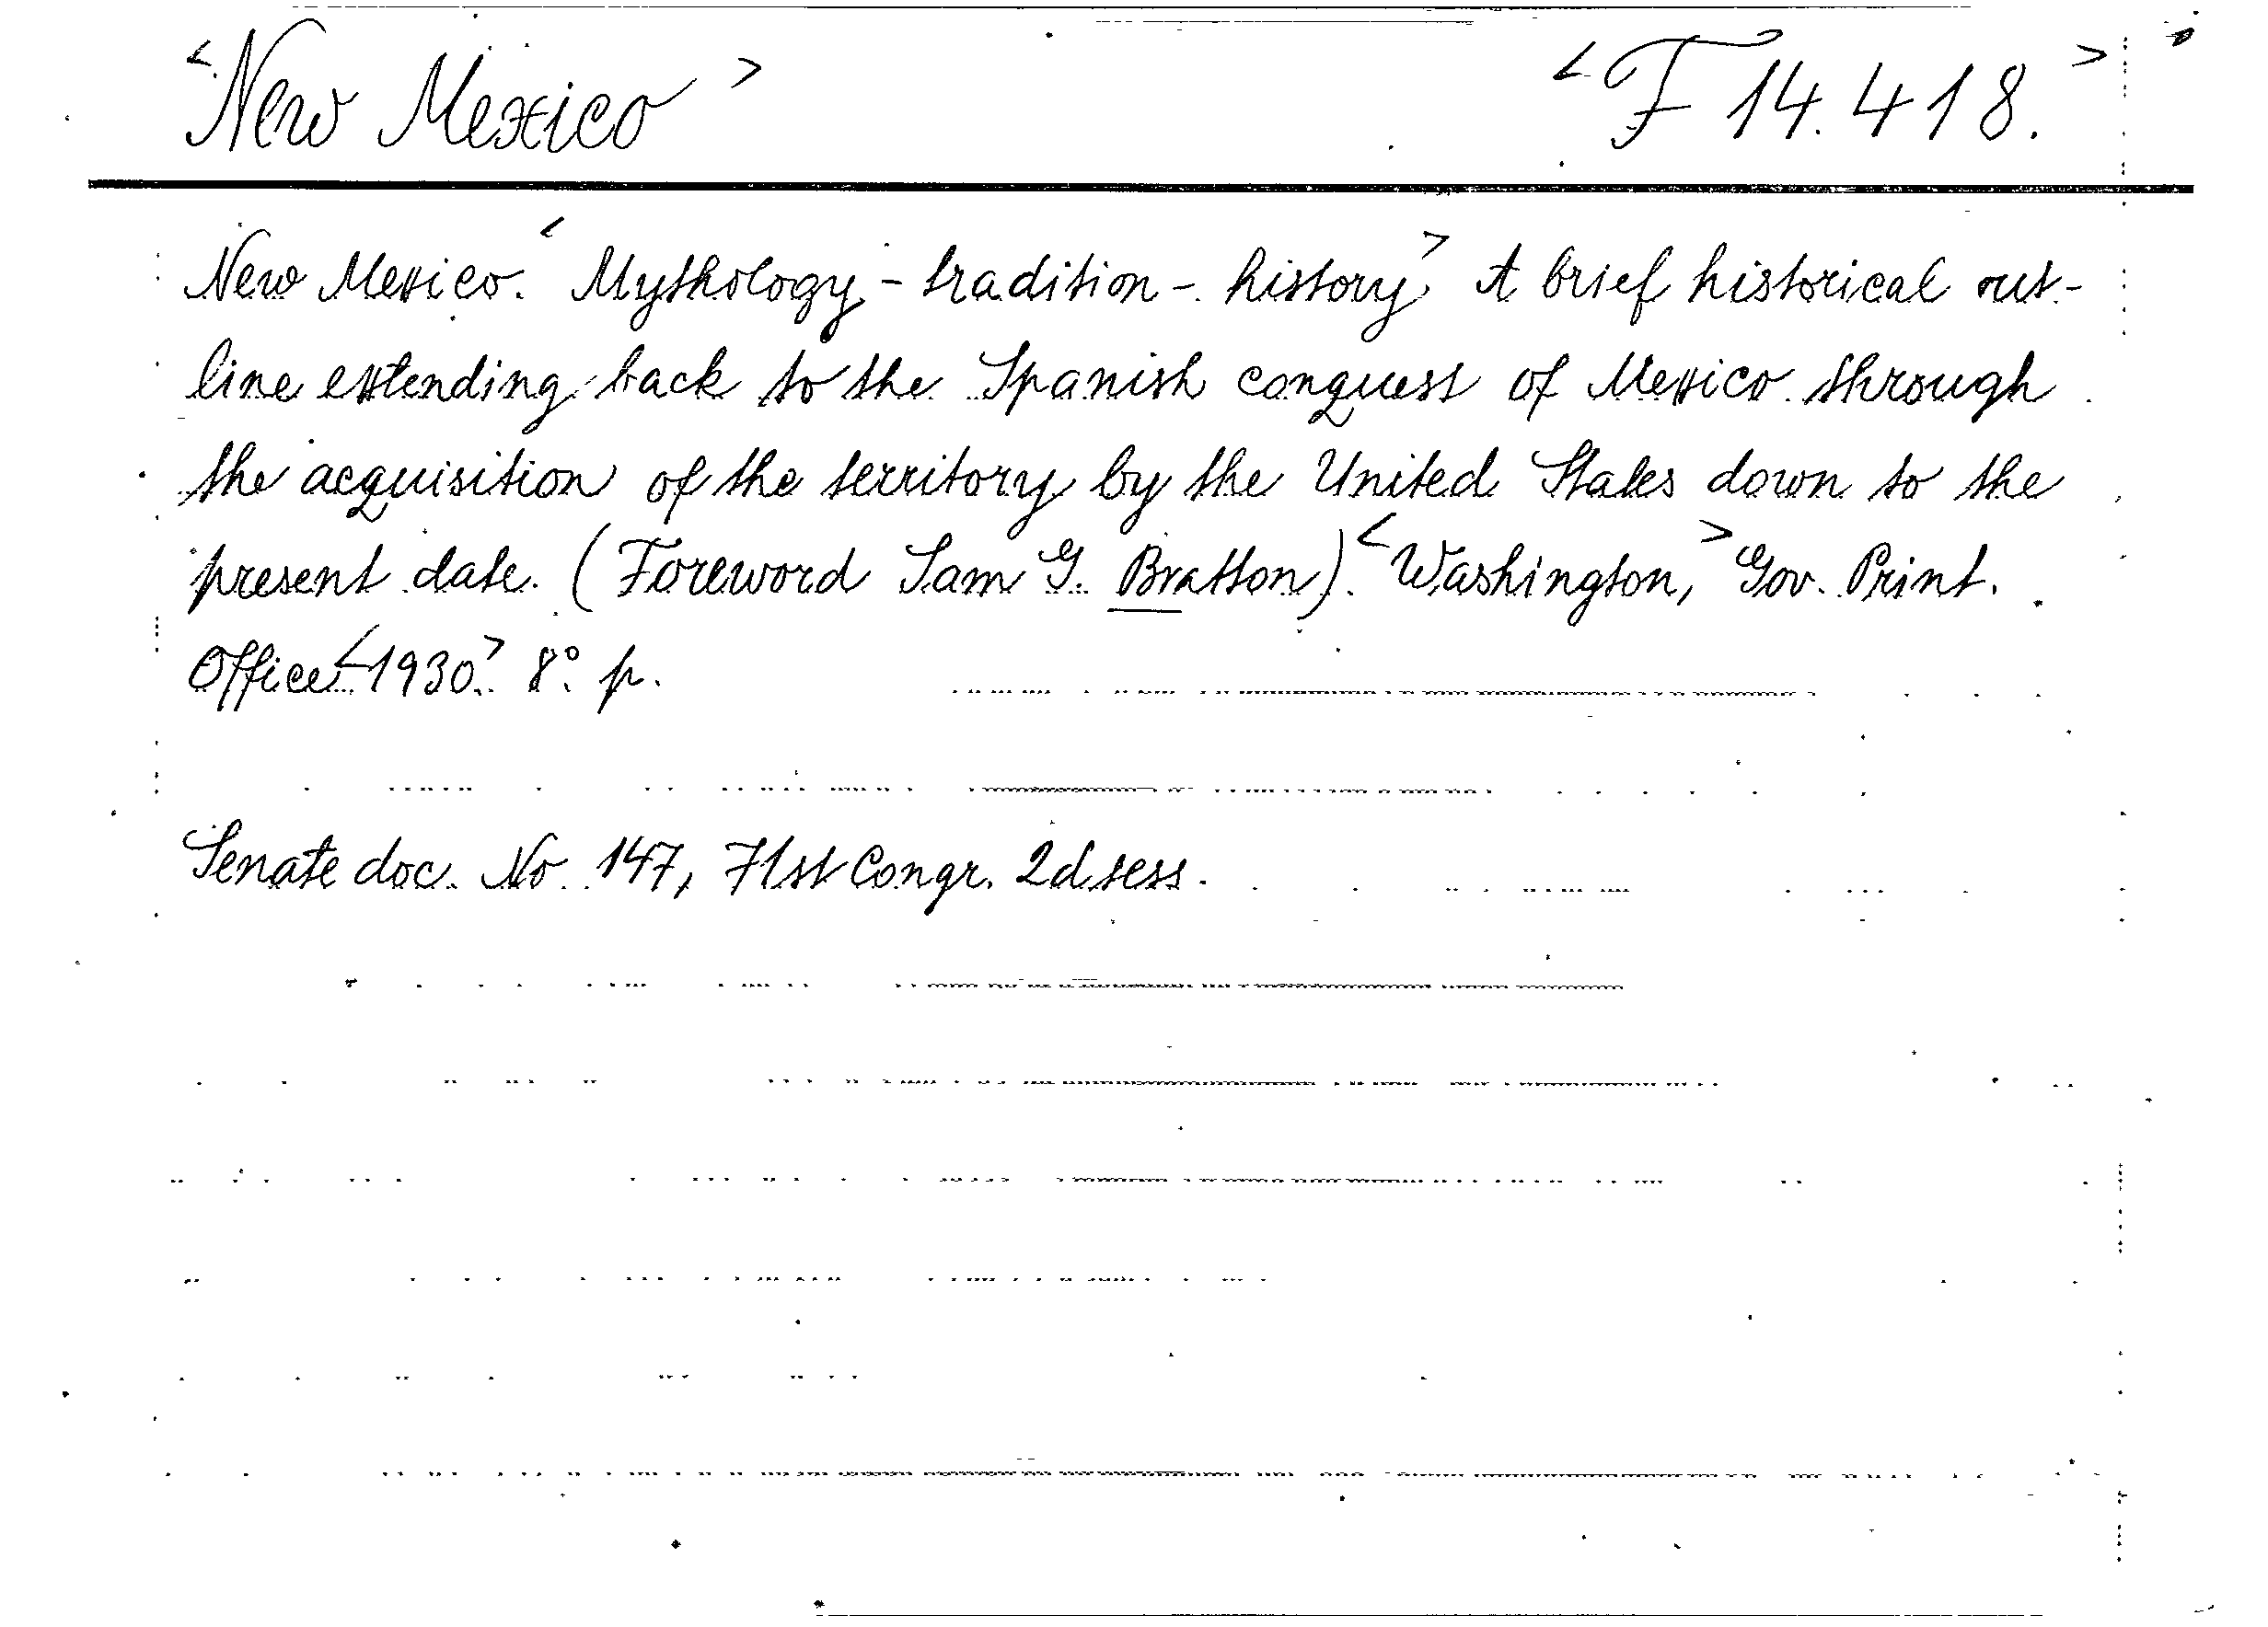 <New Mexico> <F 14.418.>
New Mexico. <Mythology - tradition - history> A brief historical out-
line extending back to the Spanish conquest of Mexico through
the acquisition of the territory by the United States down to the
present date. (Foreword Sam G. Bratton). <Washington,> Gov. Print.
Office <1930>. 8° p.
Senate doc. No 147, 71st Congr. 2d sess.